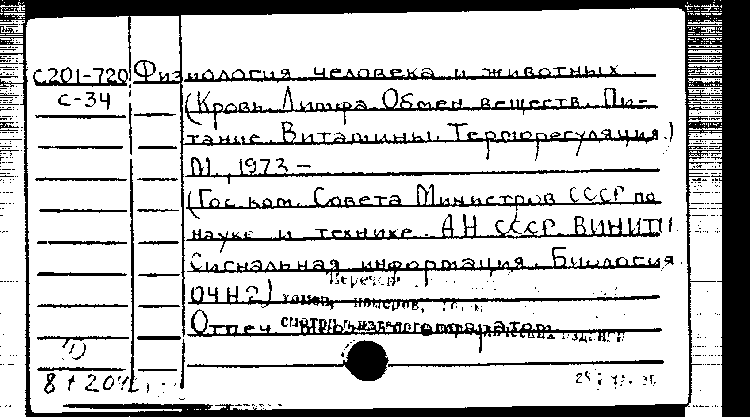 С201-720 Физиология человека и животных.
С-34 (Кровь. Лимфа. Обмен веществ. Пи-
тание. Витамины. Терморегуляция.)
М., 1973 –
(Гос. ком. Совета Министров СССР по
науке и технике. АН СССР. ВИНИТИ
Сигнальная информация. Биология
04Н2)
Перечень
томов, номеров,
Отпеч.
смотри